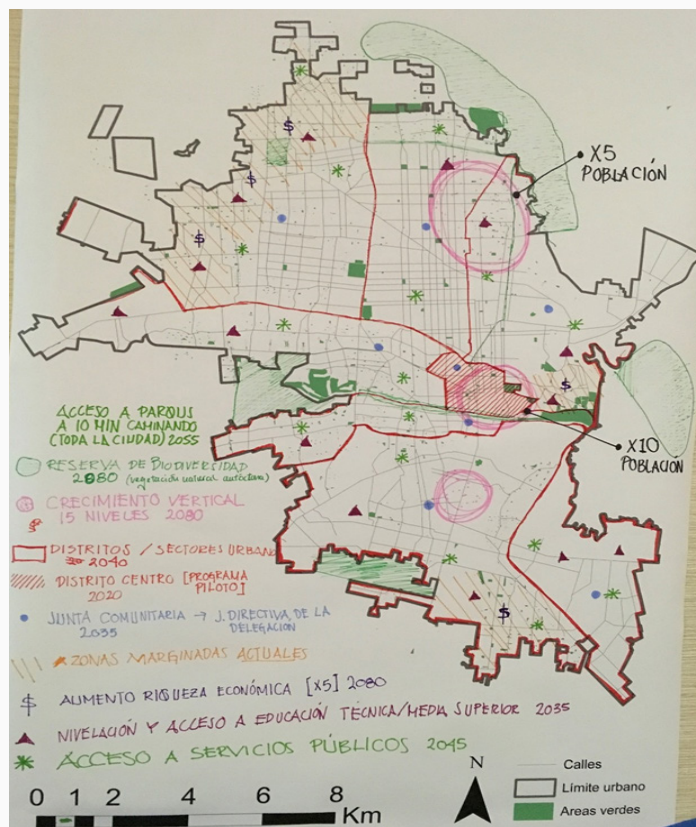 X5
POBLACIÓN
X10
POBLACIÓN
ACCESO A PARQUS
A 10 MIN CAMINANDO
(TODA LA CIUDAD) 2055
RESERVA DE BIODIVERSIDAD
2080 (vegetación natural autóctona)
CRECIMIENTO VERTICAL
15 NIVELES 2080
DISTRITOS / SECTORES URBANO
2040
DISTRITO CENTRO [PROGRAMA
PILOTO]
2020
JUNTA COMUNITARIA → J. DIRECTIVA DE LA
DELEGACIÓN
2035
ZONAS MARGINADAS ACTUALES
$ AUMENTO RIQUEZA ECONÓMICA [X5] 2080
NIVELACIÓN Y ACCESO A EDUCACIÓN TÉCNICA/MEDIA SUPERIOR 2035
ACCESO A SERVICIOS PÚBLICOS 2045
N
Calles
Límite urbano
Areas verdes
0 1 2 4 6 8
Km